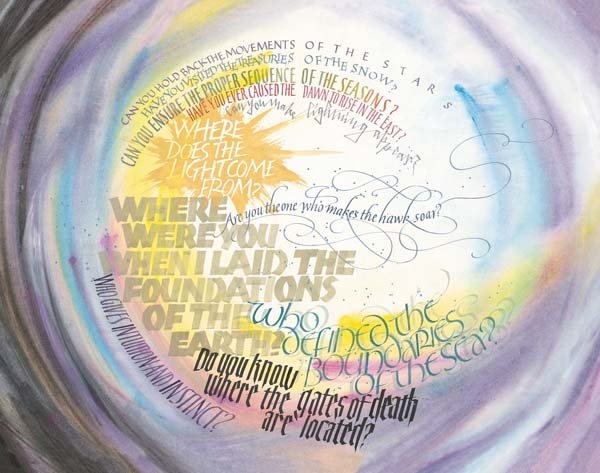 CAN YOU HOLD BACK THE MOVEMENTS OF THE STARS
HAVE YOU VISITED THE TREASURIES OF THE SNOW?
CAN YOU ENSURE THE PROPER SEQUENCE OF THE SEASONS?
HAVE YOU EVER CAUSED THE DAWN TO RISE IN THE EAST?
Can you make lightning appear?
WHERE
DOES THE
LIGHT COME
FROM?
Are you the one who makes the hawk soar?
WHERE
WERE YOU
WHEN I LAID THE
FOUNDATIONS
OF THE
EARTH?
Who
defined the
Boundaries
of the sea?
WHO GIVES INTUITION AND INSTINCT?
Do you know
where the gates of death
are located?